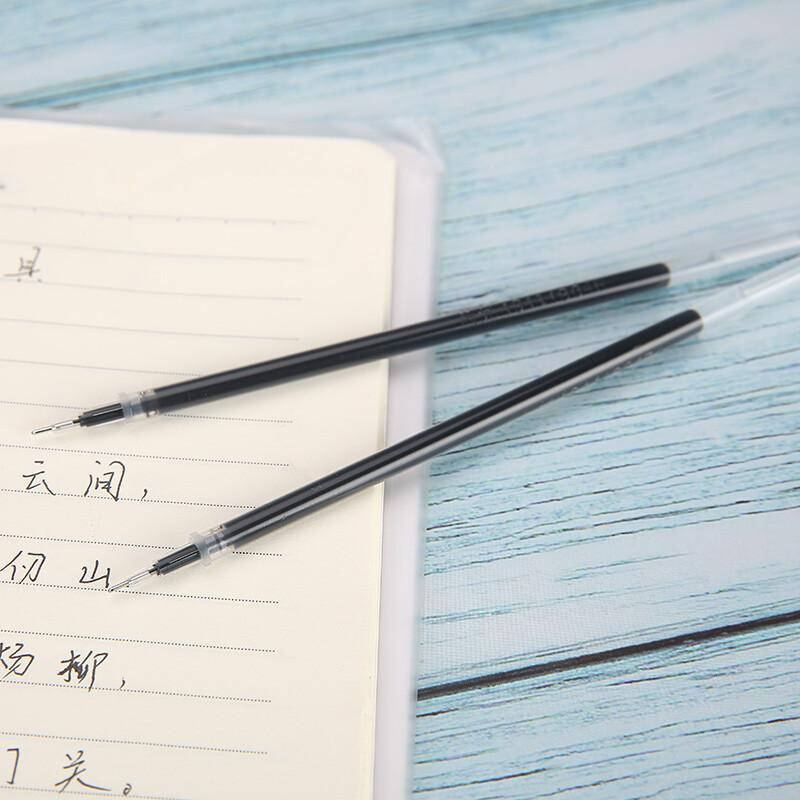 具
云间，
仞 山
杨 柳，
门 关。